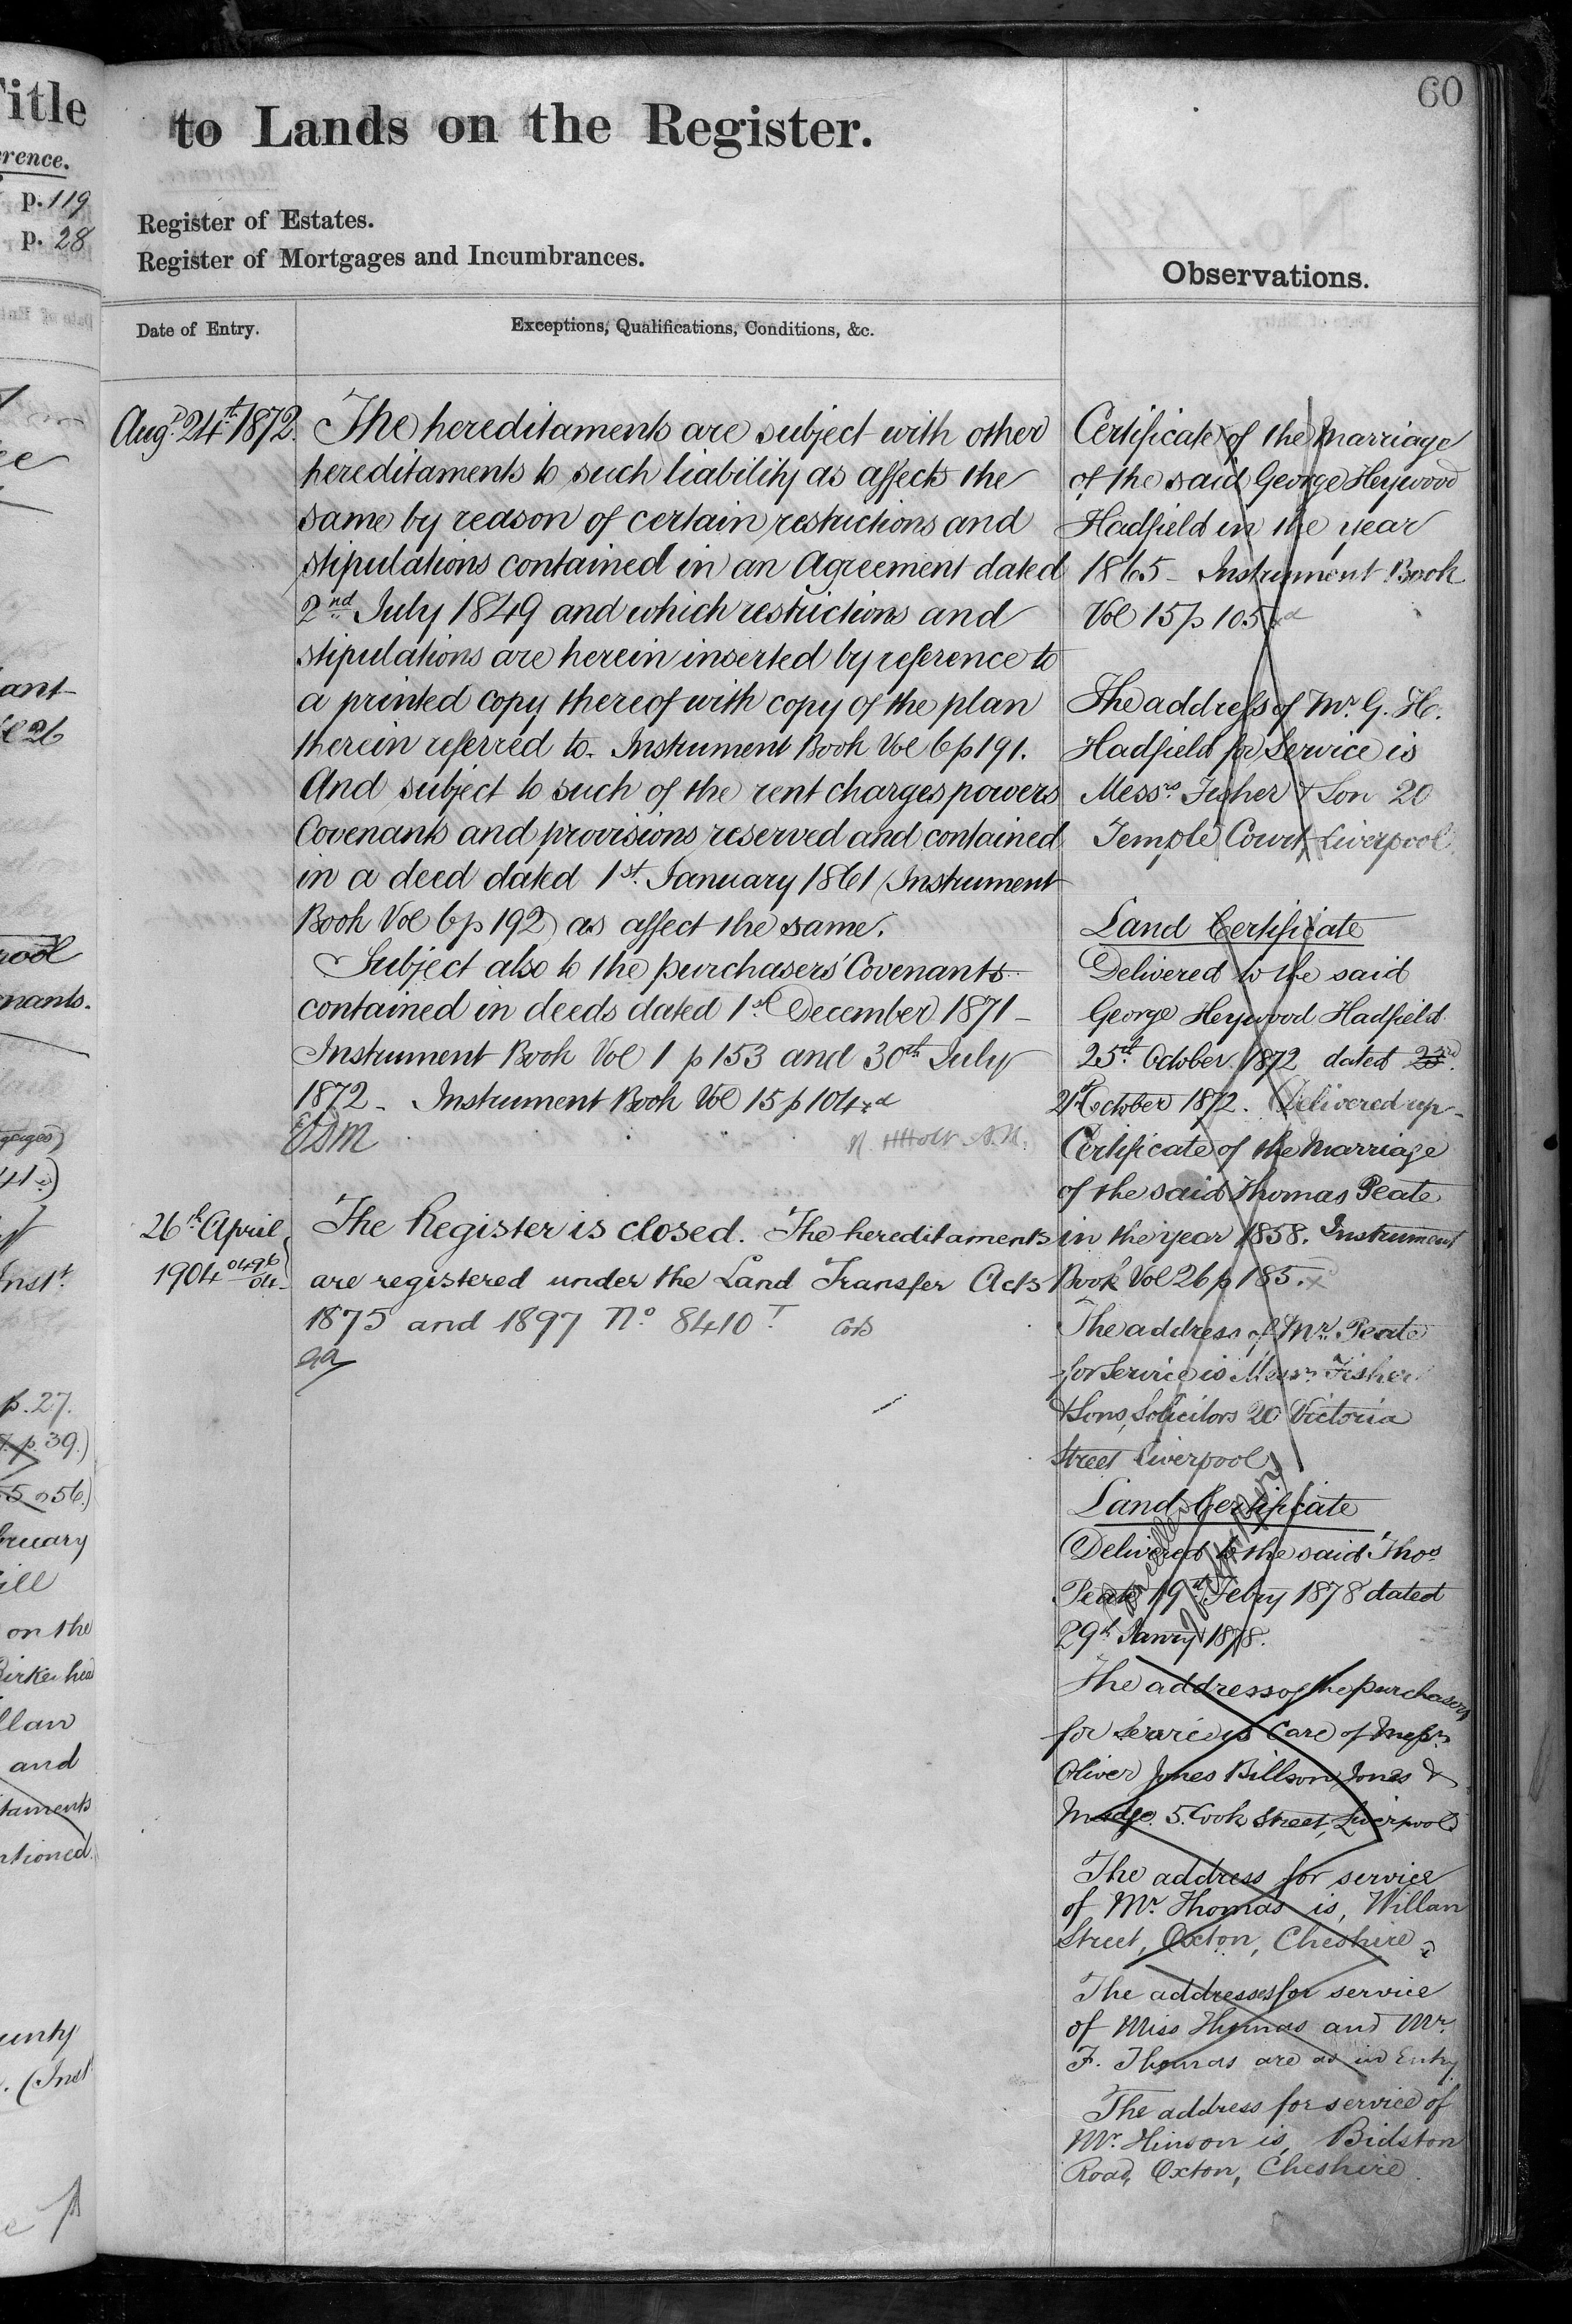 60
Title
to Lands on the Register.
p. 119
p. 28
Register of Estates.
Register of Mortgages and Incumbrances.
Observations.
Date of Entry.
Exceptions, Qualifications, Conditions, &c.
Augt. 24th 1872.
The hereditaments are subject with other
hereditaments to such liability as affects the
same by reason of certain restrictions and
stipulations contained in an Agreement dated
2nd July 1849 and which restrictions and
stipulations are herein inserted by reference to
a printed copy thereof with copy of the plan
therein referred to. Instrument Book Vol 6 p 191.
And subject to such of the rent charges powers
Covenants and provisions reserved and contained
in a deed dated 1st. January 1861 (Instrument
Book Vol 6 p 192) as affect the same.
Subject also to the purchasers' Covenants
contained in deeds dated 1st December 1871 -
Instrument Book Vol 1 p 153 and 30th July
1872 - Instrument Book Vol 15 p 104
26th April
1904 0496/04
The Register is closed. The hereditaments
are registered under the Land Transfer Acts
1875 and 1897 No 8410 T
Certificate of the Marriage
of the said George Heywood
Hadfield in the year
1865 - Instrument Book
Vol 15 p 105
The address of Mr. G. H.
Hadfield for Service is
Messrs Fisher & Son 20
Temple Court Liverpool
Land Certificate
Delivered to the said
George Heywood Hadfield
25th October 1872 dated 23rd
21st October 1872. Delivered up -
Certificate of the Marriage
of the said Thomas Peate
in the year 1858. Instrument
Book Vol 26 p 185.
The address of Mr. Peate
for Service is Messrs Fisher
& Sons, Solicitors 20 Victoria
Street Liverpool
Land Certificate
Delivered to the said Thos
Peate 19th Febry 1878 dated
29th Janry 1878.
Cancelled
The address of the purchasers
for Service is Care of Messrs
Oliver Jones Billson Jones &
5. Cook Street, Liverpool
The address for service
of Mr. Thomas is, Willan
Street, Oxton, Cheshire
The addresses for service
of Miss Thomas and Mr.
F. Thomas are as in Entry
The address for service of
Mr. Hinson is, Bidston
Road, Oxton, Cheshire.